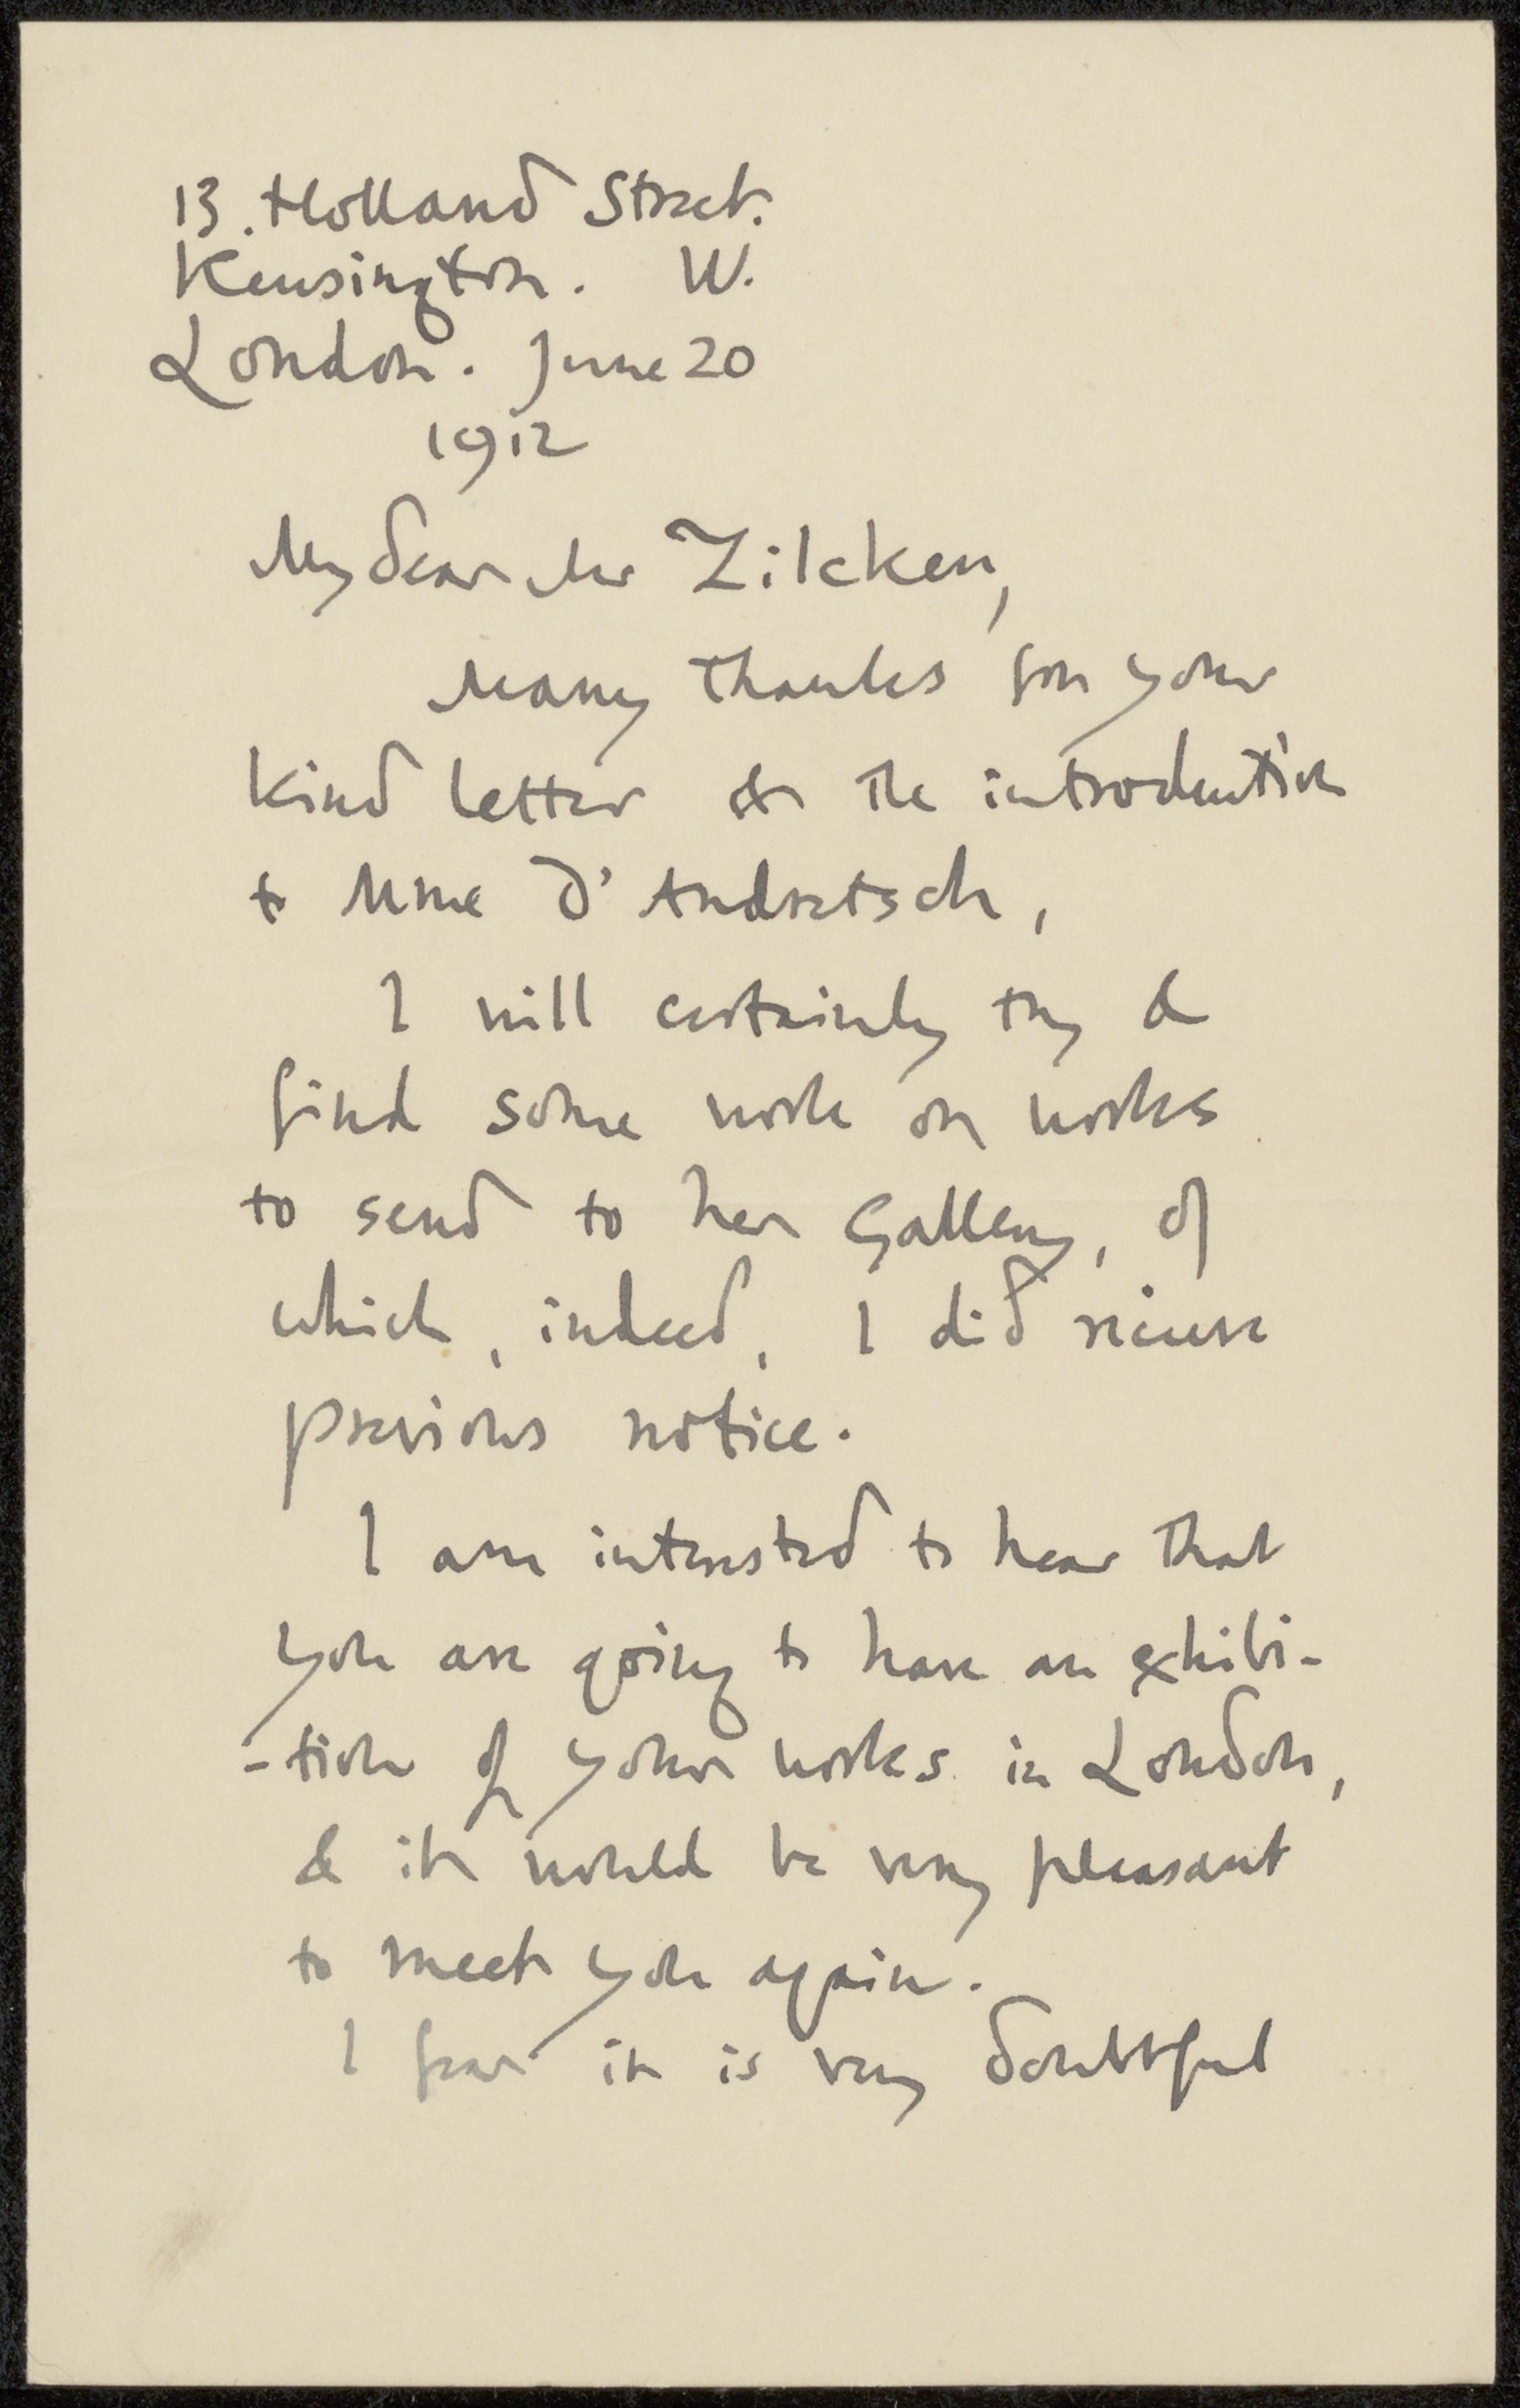 13. Holland Street.
Kensington. W.
London. June 20
1912
My dear Mr Zilcken,
Many thanks for your
kind letter & the introduction
to Mme d'Andretsch,
I will certainly try &
find some work or works
to send to her Gallery, of
which, indeed, I did receive
previous notice.
I am interested to hear that
you are going to have an exhibi-
-tion of your works in London,
& it would be very pleasant
to meet you again.
I fear it is very doubtful